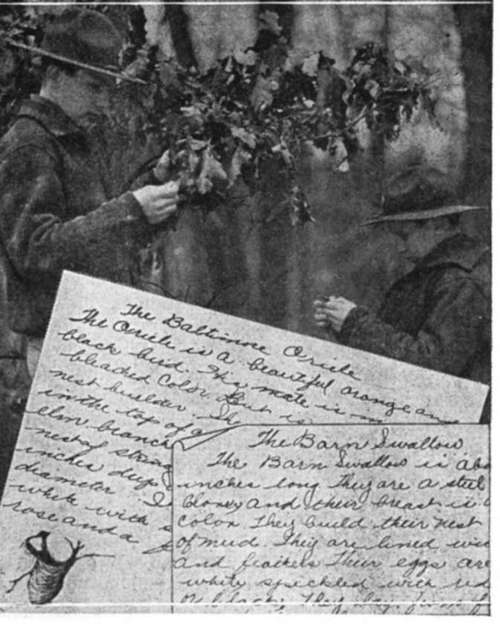 The Baltimore Oriole
The Oriole is a beautiful orange and
black bird. His mate is
blended color. But is
nest builder. The
in the top of a
elm branch
nest of string
inches deep
diameter. I
white with s
rose and a
The Barn Swallow
The Barn Swallow is abo
inches long They are a steel
and their breast is
color They build their nest
of mud. They are lined wi
and feathers Their eggs are
white speckled with red
or black. They